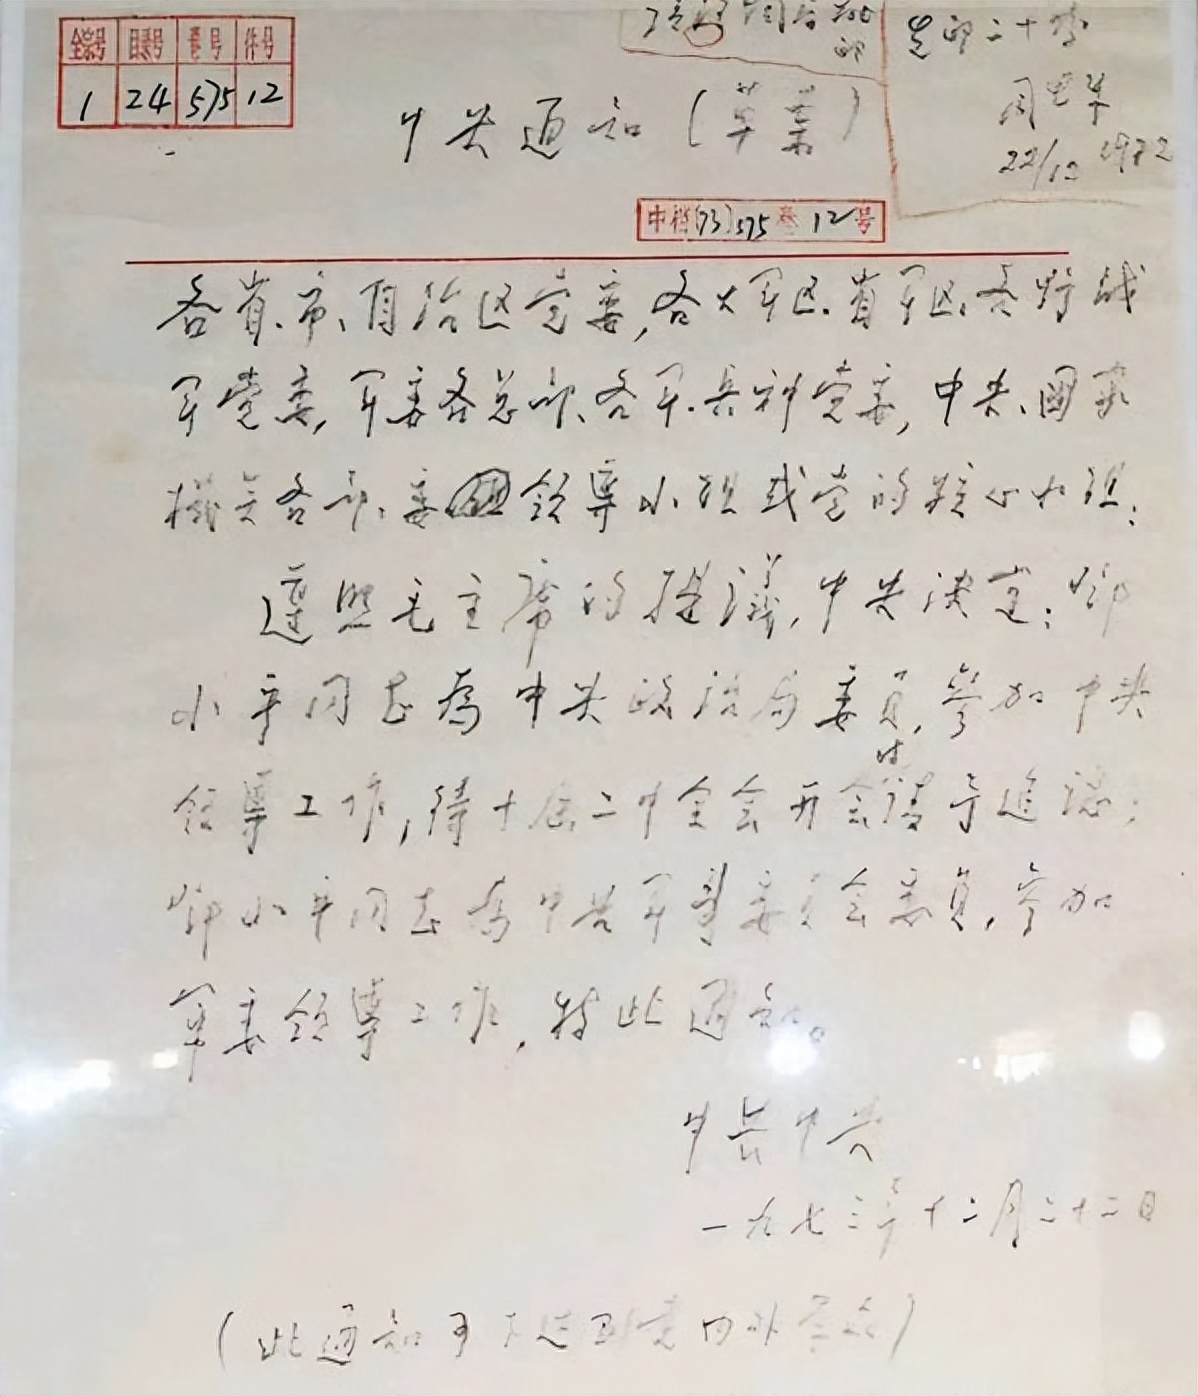 全宗号 目录号 卷号 件号
1 24 575 12
先印二十份
周恩来
22/12 1973
中央通知(草案)
中档(73)575卷12号
各省、市、自治区党委,各大军区、省军区、各野战
军党委,军委各总部、各军、兵种党委,中央、國家
機关各部、委领导小组或党的核心小组:
遵照毛主席的提議,中央决定:鄧
小平同志為中央政治局委員,参加中央
领導工作,待十届二中全会开会时請予追認;
鄧小平同志為中共中央军事委員会委員,参加
军委领導工作。特此通知。
中共中央
一九七三年十二月二十二日
(此通知可下达到党内外群众)